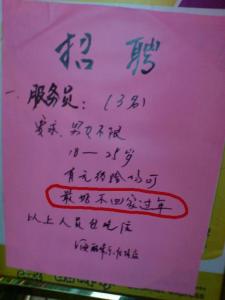 招聘
一. 服务员：（3名）
要求，男女不限
18—25岁
有无经验均可
最好不回家过年
以上人员包吃住